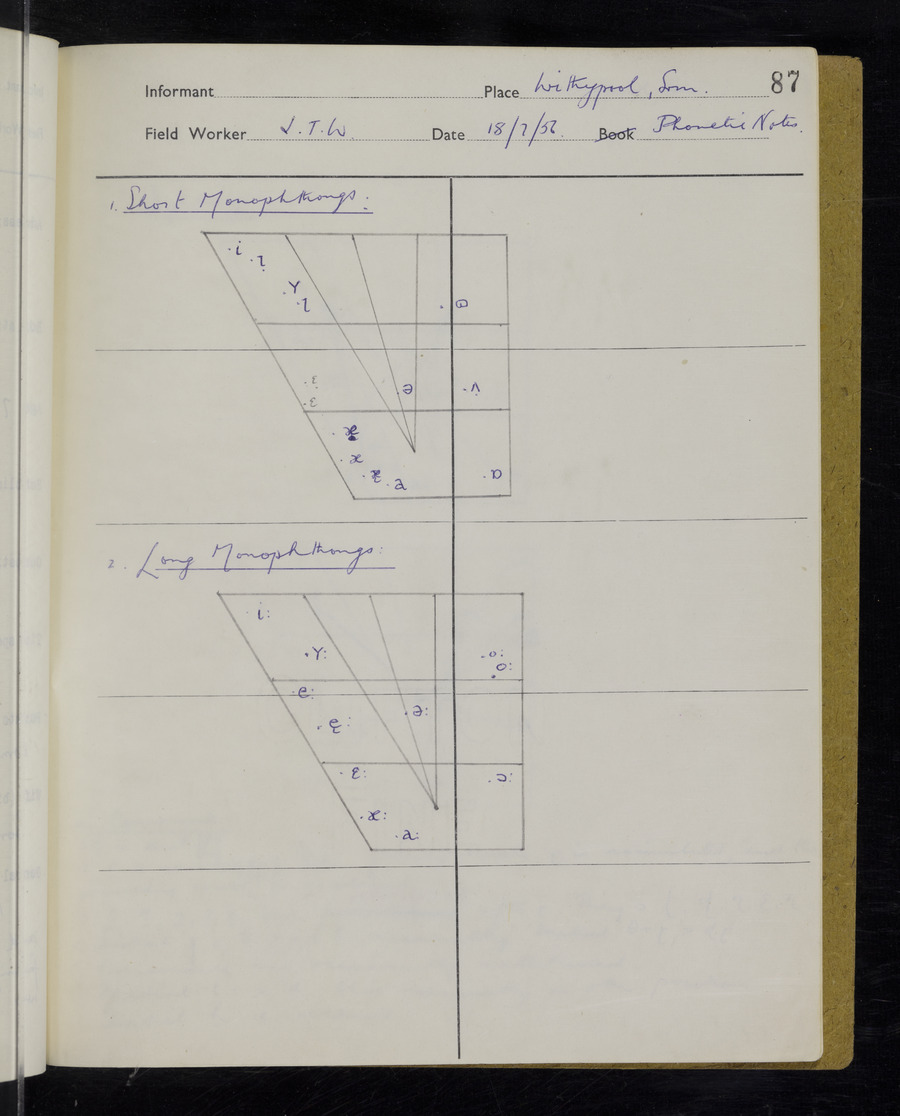 87
Informant Place Withypool, Som.
Field Worker J.T.W. Date 18/7/56. Book Phonetic Notes.
1. Short Monophthongs:
i
ɩ̣
Y
ɩ
ɷ
ɛ̣
ɛ
ə
ʌ
æ
æ
æ
a
ɒ
2. Long Monophthongs:
i:
Y:
o:
o:
e:
ə:
ẹ:
ɛ:
ɔ:
æ:
a: